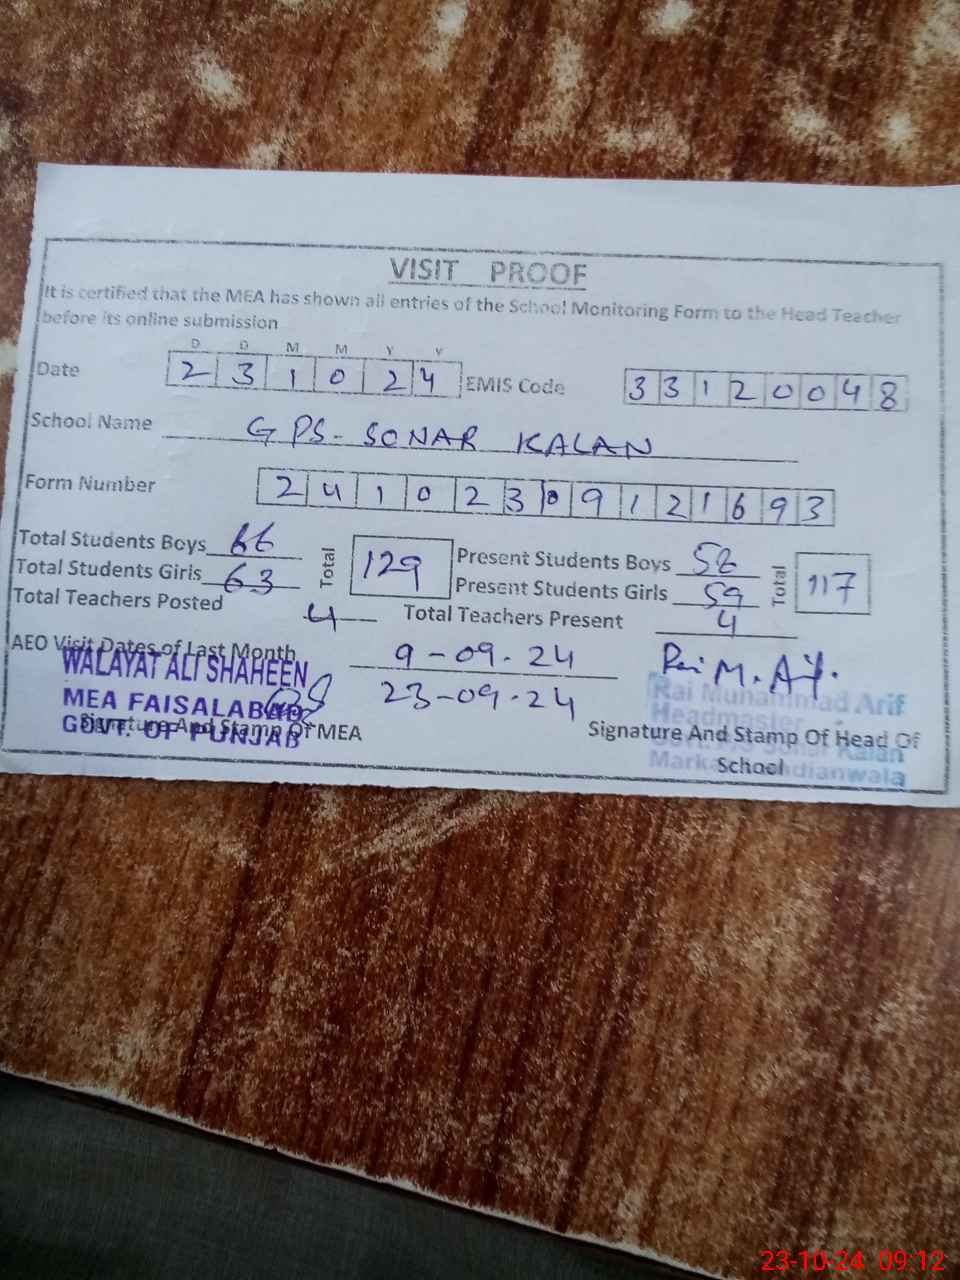 VISIT PROOF
It is certified that the MEA has shown all entries of the School Monitoring Form to the Head Teacher
before its online submission
D D M M Y Y
Date 2 3 1 0 2 4 EMIS Code 3 3 1 2 0 0 4 8
School Name GPS-SONAR KALAN
Form Number 2 4 1 0 2 3 0 9 1 2 1 6 9 3
Total Students Boys 66 Total 129 Present Students Boys 58 Total 117
Total Students Girls 63 Present Students Girls 59
Total Teachers Posted 4 Total Teachers Present 4
AEO Visit Dates of Last Month 9-09-24
23-09-24
WALAYAT ALI SHAHEEN
MEA FAISALABAD
GOVT. OF PUNJAB
Signature And Stamp Of MEA
Rai M. Arif
Rai Muhammad Arif
Headmaster
Signature And Stamp Of Head Of
School
Kalan
23-10-24 09:12